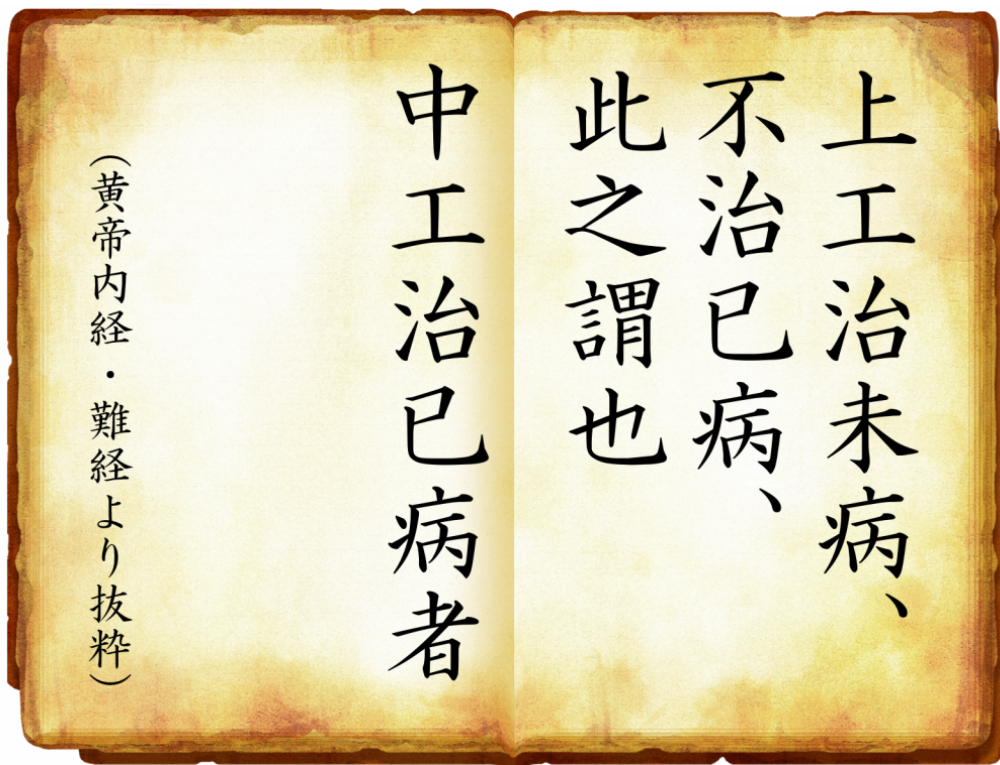 上工治未病、
不治已病、
此之謂也
中工治已病者
（黄帝内経・難経より抜粋）